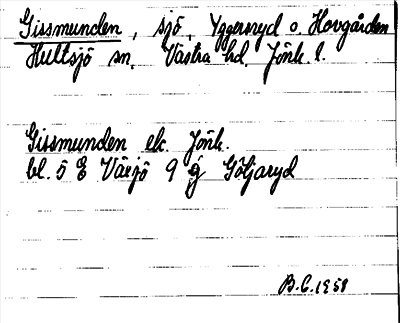 Gissmunden, sjö, Yggersryd o. Hovgården
Hultsjö sn. Västra hd. Jönk. l.
Gissmunden ek. Jönk.
bl. 5 E Växjö 9 g Göljaryd
B.C. 1958